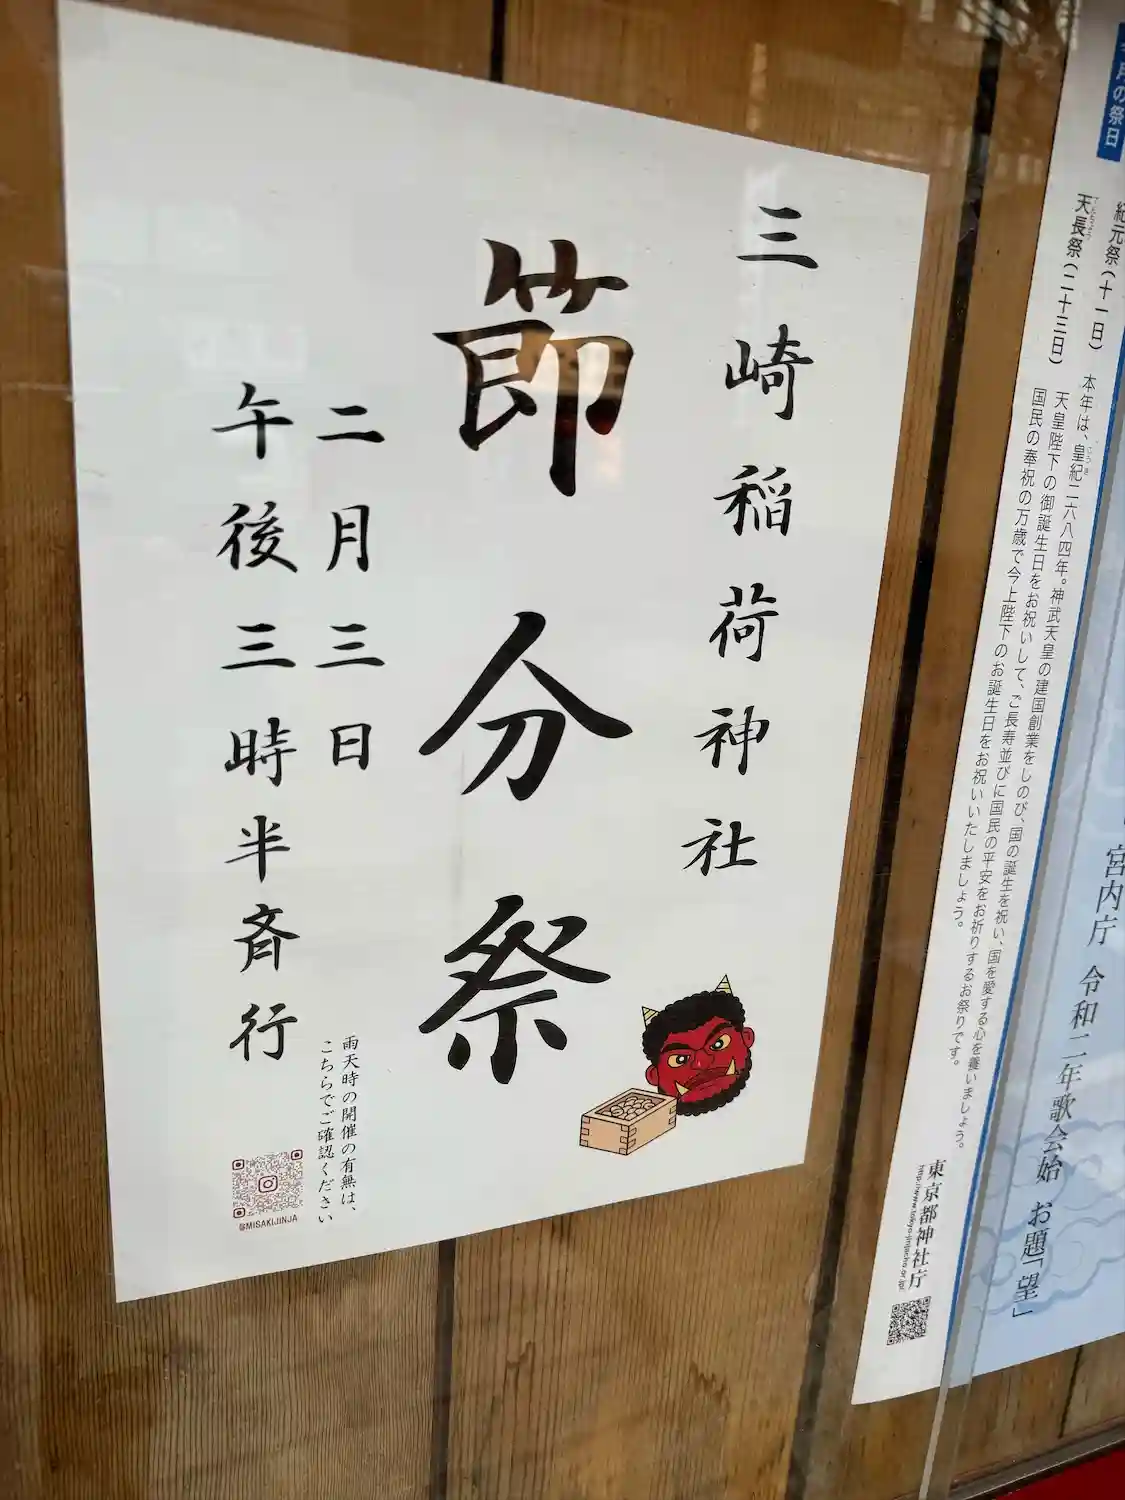 三崎稲荷神社
節分祭
二月三日
午後三時半斉行
雨天時の開催の有無は、
こちらでご確認ください
@MISAKIJINJA
今月の祭日
紀元祭(十一日)
本年は、皇紀二六八四年。神武天皇の建国創業をしのび、国の誕生を祝い、国を愛する心を養いましょう。
天長祭(二十三日)
天皇陛下の御誕生日をお祝いして、ご長寿並びに国民の平安をお祈りするお祭りです。
国民の奉祝の万歳で今上陛下のお誕生日をお祝いいたしましょう。
東京都神社庁
http://www.tokyo-jinjacho.or.jp/
宮内庁 令和二年歌会始 お題「望」